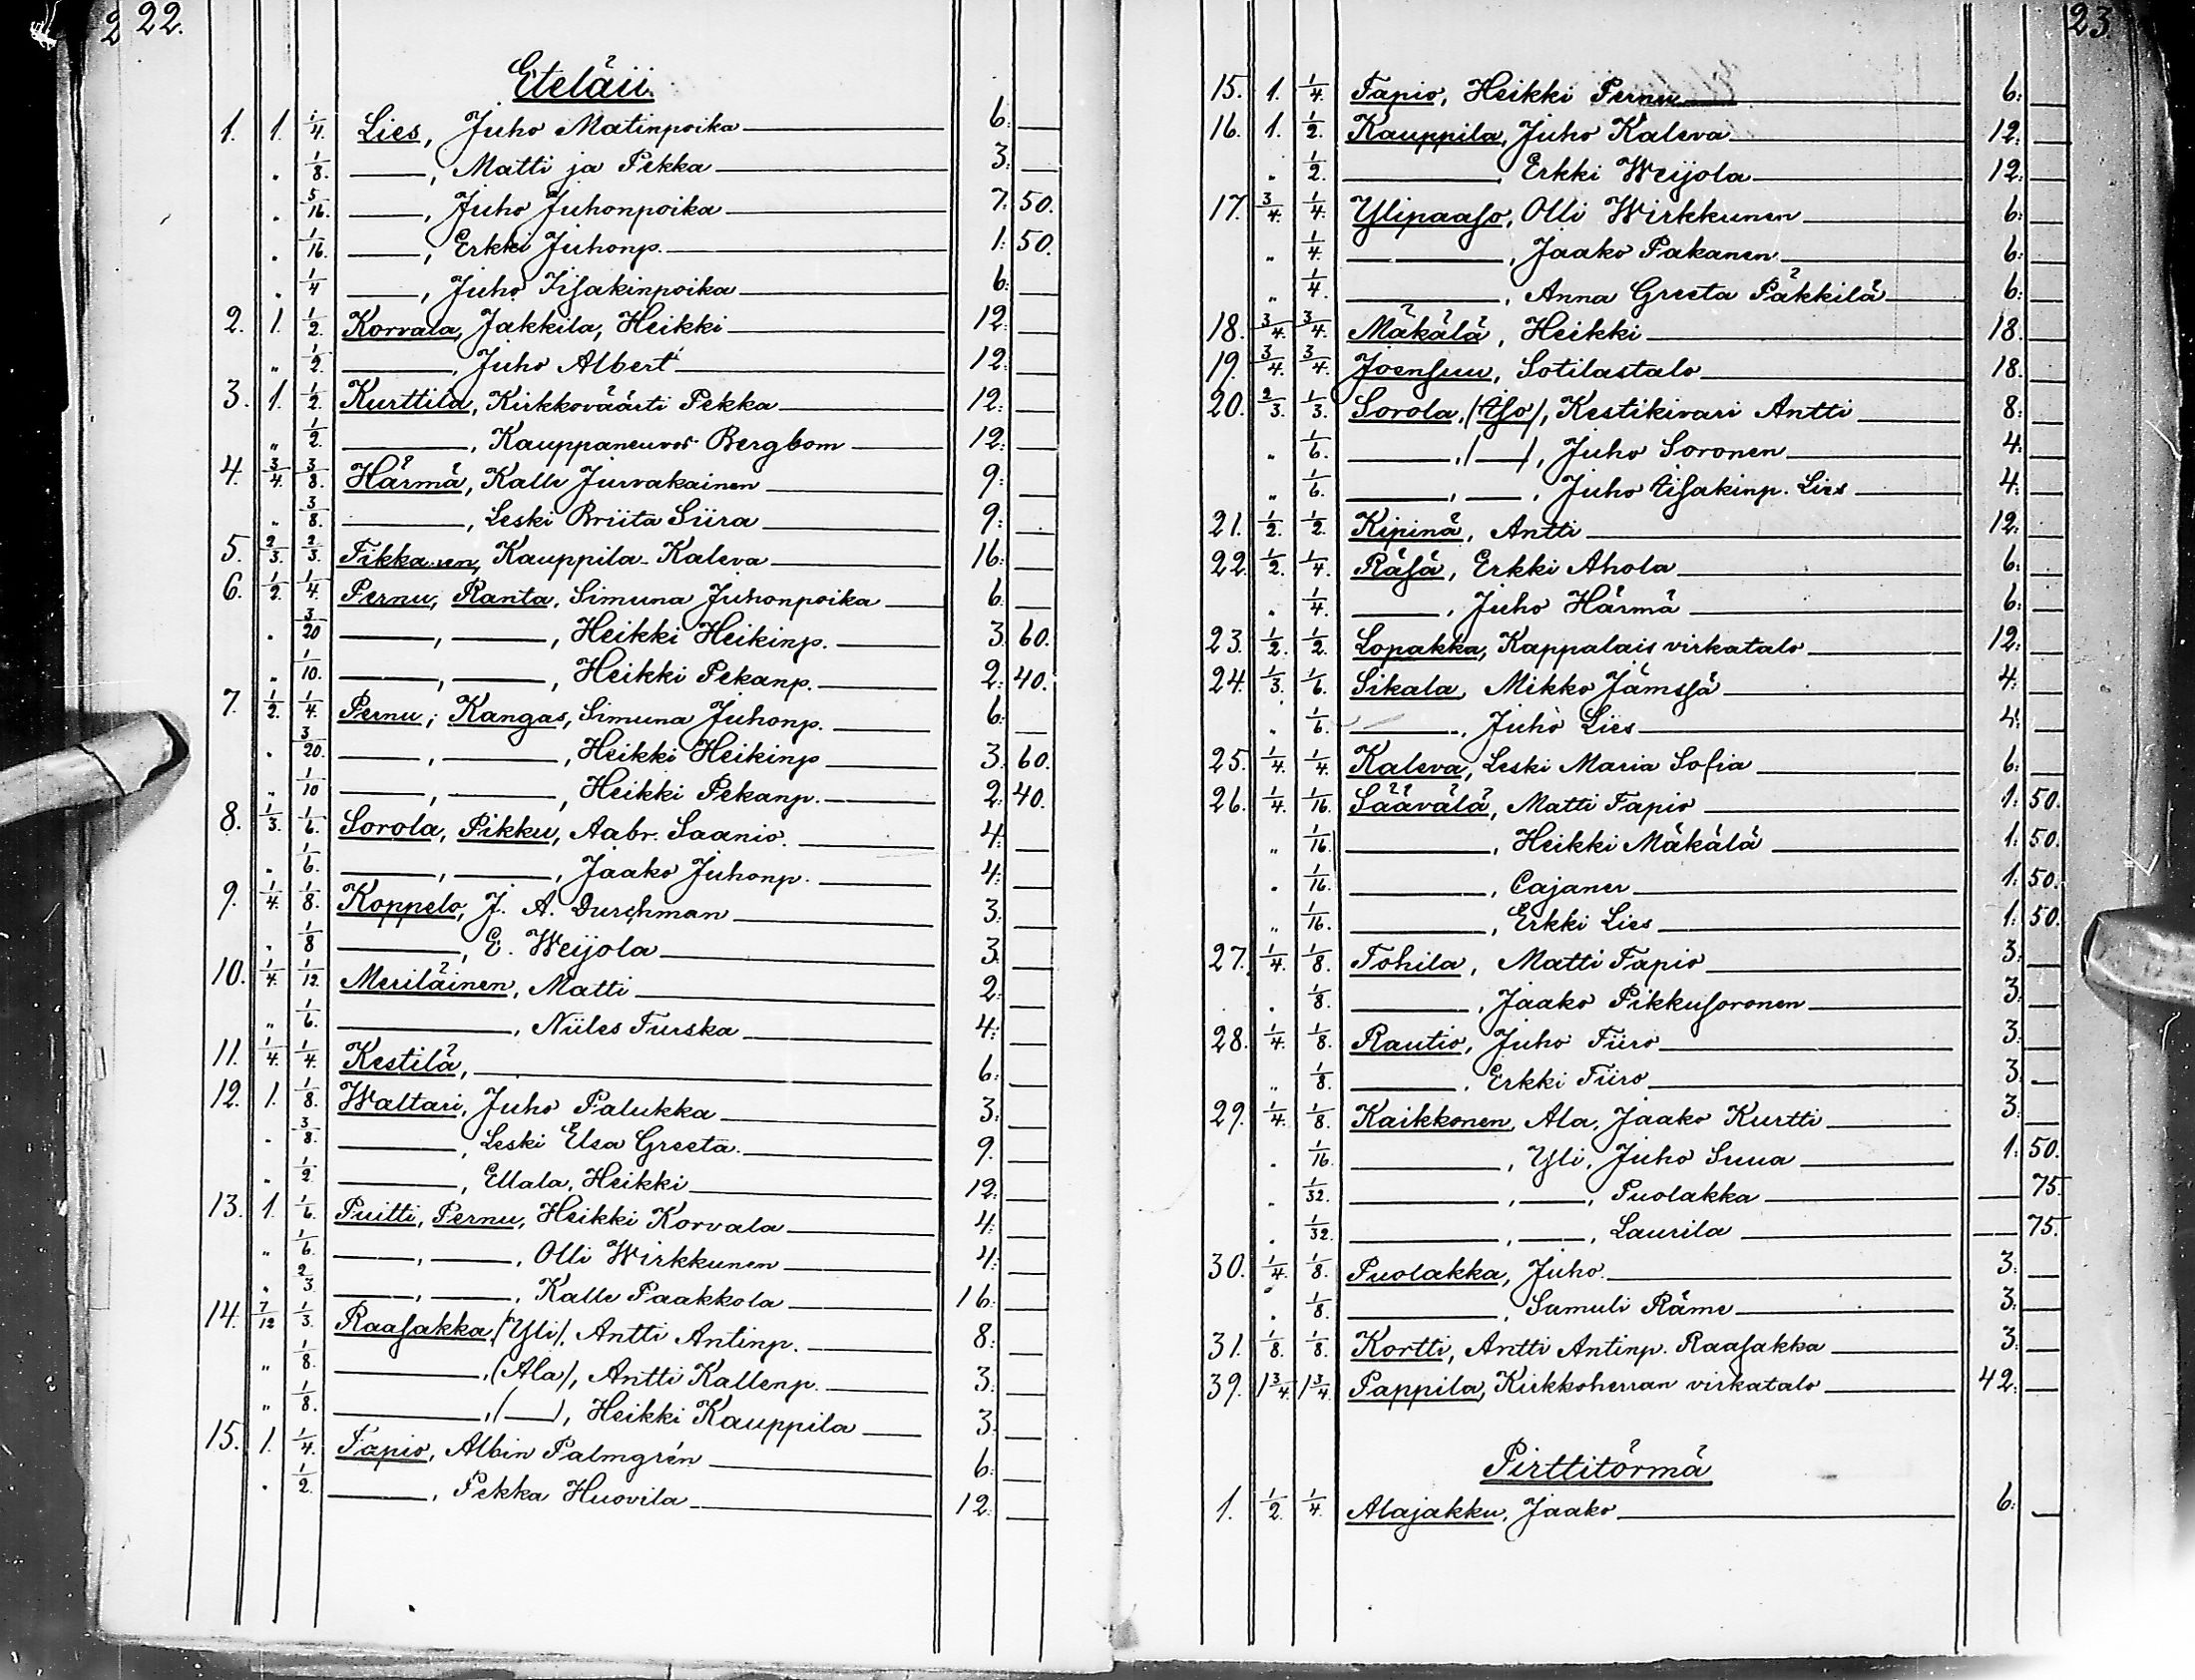 2 22.
Eteläii.
1. 1. 1/4. Lies, Juho Matinpoika 6: —
„ 1/8. —, Matti ja Pekka 3: —
„ 5/16. —, Juho Juhonpoika 7: 50.
„ 1/16. —, Erkki Juhonp. 1: 50.
„ 1/4 —, Juho Iisakinpoika 6: —
2. 1. 1/2. Korvala, Jakkila, Heikki 12: —
„ 1/2. —, Juho Albert 12: —
3. 1. 1/2. Kurttila, Kirkkoväärti Pekka 12: —
„ 1/2. —, Kauppaneuvos Bergbom 12: —
4. 3/4. 3/8. Härmä, Kalle Jurvakainen 9: —
„ 3/8. —, Leski Briita Siira 9: —
5. 2/3. 2/3. Tikkanen, Kauppila-Kaleva 16: —
6. 1/2. 1/4. Pernu, Ranta, Simuna Juhonpoika 6: —
„ 3/20 —, —, Heikki Heikinp. 3: 60.
„ 1/10. —, —, Heikki Pekanp. 2: 40.
7. 1/2. 1/4. Pernu; Kangas, Simuna Juhonp. 6: —
„ 3/20. —, —, Heikki Heikinp 3: 60.
„ 1/10 —, —, Heikki Pekanp. 2: 40.
8. 1/3. 1/6. Sorola, Pikku, Aabr. Saanio. 4: —
„ 1/6. —, —, Jaako Juhonp. 4: —
9. 1/4. 1/8. Koppelo, J. A. Durchman 3: —
„ 1/8 —, E. Weijola 3: —
10. 1/4. 1/12. Meriläinen, Matti 2: —
„ 1/6. —, Niiles Turska 4: —
11. 1/4. 1/4. Kestilä, 6: —
12. 1. 1/8. Waltari, Juho Palukka 3: —
„ 3/8. —, Leski Elsa Greeta. 9. —
„ 1/2 —, Ellala, Heikki 12: —
13. 1. 1/6. Puitti, Pernu, Heikki Korvala 4: —
„ 1/6. —, —, Olli Wirkkunen 4: —
„ 2/3 —, —, Kalle Paakkola 16: —
14. 7/12 1/3. Raasakka, (Yli), Antti Antinp. 8: —
„ 1/8. —, (Ala), Antti Kallenp. 3: —
„ 1/8. —, (—), Heikki Kauppila 3: —
15. 1. 1/4. Tapio, Albin Palmgrén 6: —
„ 1/2. —, Pekka Huovila 12: —
23.
15. 1. 1/4. Tapio, Heikki Pernu 6: —
16. 1. 1/2. Kauppila, Juho Kaleva 12: —
„ 1/2. —, Erkki Weijola 12: —
17. 3/4. 1/4. Ylipaaso, Olli Wirkkunen 6: —
„ 1/4. —, Jaako Pakanen 6: —
„ 1/4. —, Anna Greeta Päkkilä 6: —
18. 3/4. 3/4. Mäkälä, Heikki 18. —
19. 3/4. 3/4. Joensuu, Sotilastalo 18. —
20. 2/3. 1/3. Sorola, (Iso), Kestikivari Antti 8: —
„ 1/6. —, (—), Juho Soronen 4: —
„ 1/6. —, —, Juho Iisakinp. Lies 4: —
21. 1/2. 1/2. Kipinä, Antti 12: —
22. 1/2. 1/4. Räsä, Erkki Ahola 6: —
„ 1/4. —, Juho Härmä 6: —
23. 1/2. 1/2. Lopakka, Kappalais virkatalo 12: —
24. 1/3. 1/6. Sikala, Mikko Jämssä 4: —
„ 1/6. —, Juho Lies 4: —
25. 1/4. 1/4. Kaleva, Leski Maria Sofia 6: —
26. 1/4. 1/16. Säävälä, Matti Tapio 1: 50.
„ 1/16. —, Heikki Mäkälä 1: 50.
„ 1/16. —, Cajaner 1: 50.
„ 1/16. —, Erkki Lies 1: 50.
27. 1/4. 1/8. Tohila, Matti Tapio 3: —
„ 1/8. —, Jaako Pikkusoronen 3: —
28. 1/4. 1/8. Rautio, Juho Tiiro 3: —
„ 1/8. —, Erkki Tiiro 3: —
29. 1/4. 1/8. Kaikkonen, Ala, Jaako Kurtti 3: —
„ 1/16. —, Yli, Juho Suua 1: 50.
„ 1/32. —, —, Puolakka — 75.
„ 1/32. —, —, Laurila — 75.
30. 1/4. 1/8. Puolakka, Juho. 3: —
„ 1/8. —, Samuli Räme 3: —
31. 1/8. 1/8. Kortti, Antti Antinp. Raasakka 3: —
39. 1 3/4. 1 3/4. Pappila, Kirkkoherran virkatalo 42: —
Pirttitörmä
1. 1/2. 1/4. Alajakku, Jaako 6: —